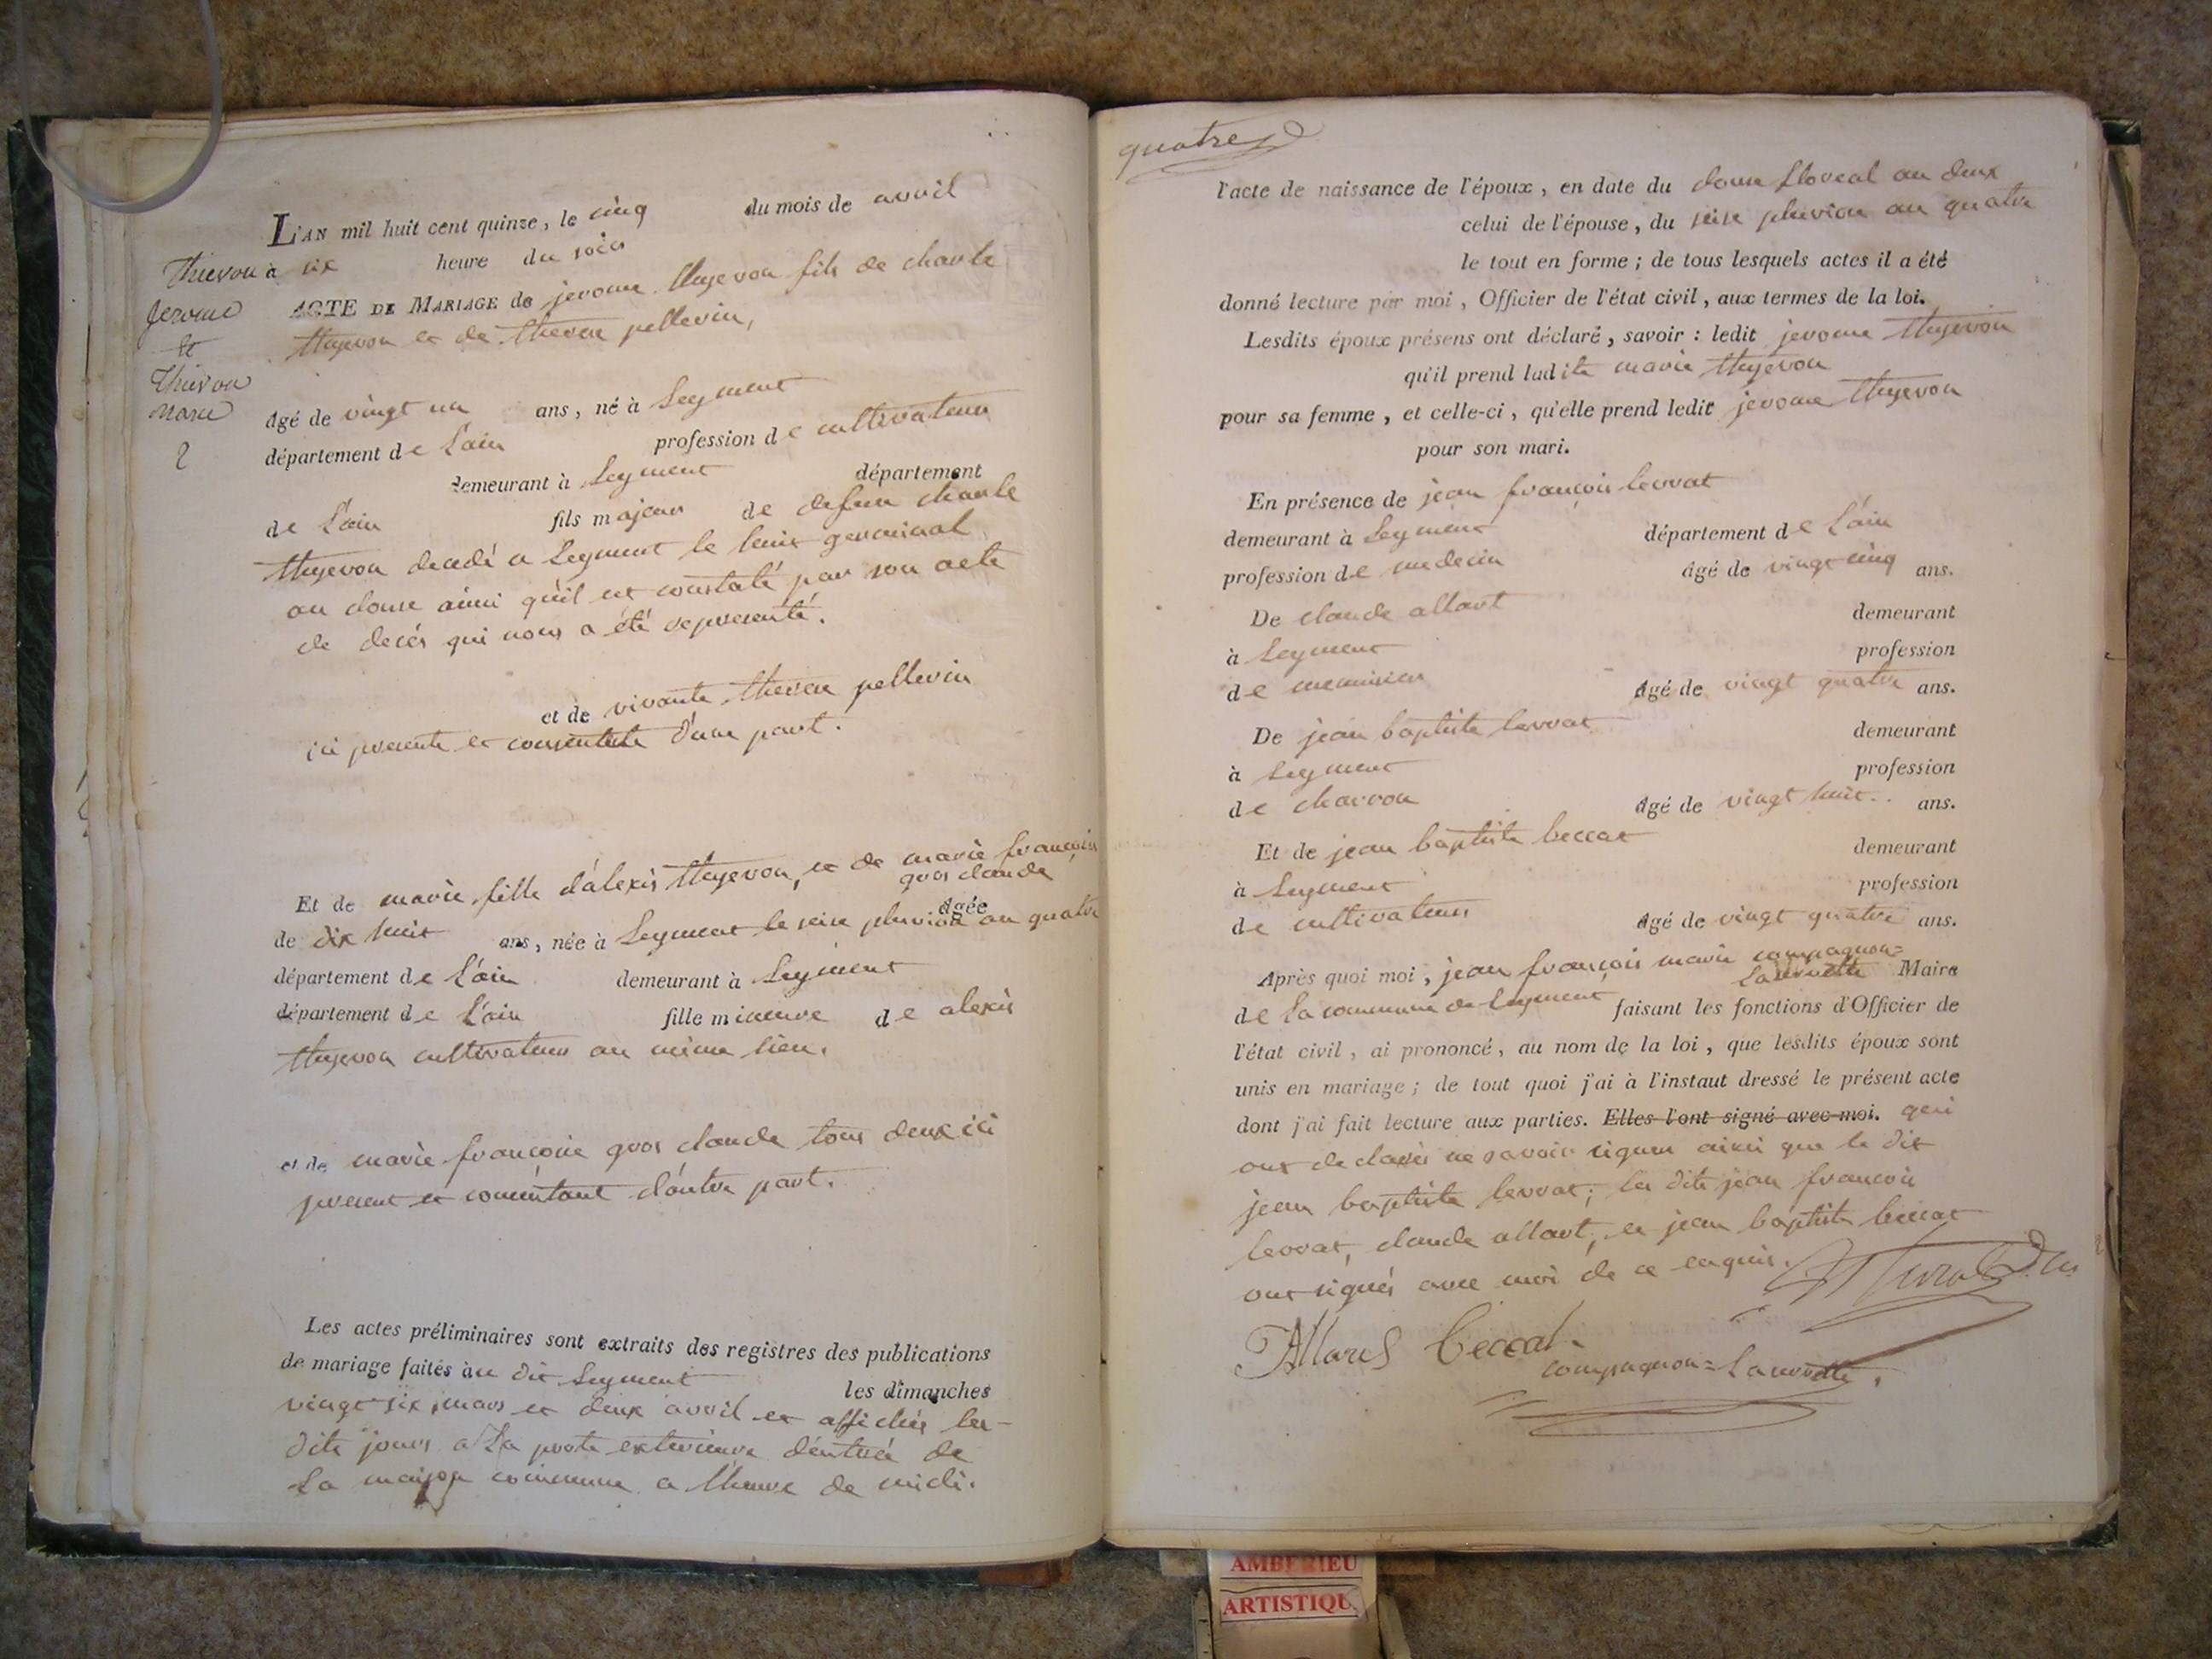 L'AN mil huit cent quinze, le cinq du mois de avril
à six heure du soir
Thievon
Jerome
et
Thievon
Marie
2
ACTE DE MARIAGE de jerome thyevon fils de charle
thyevon et de therese pellerin,
âgé de vingt un ans, né à Leyment
département de L'ain profession de cultivateur
demeurant à Leyment département
de L'ain fils majeur de defun charle
thyevon decedé a Leyment le huit germinal
an douse ainsi qu'il est constaté par son acte
de decés qui nous a été representé.
et de vivante therese pellerin
ici presente et consentente d'une part.
Et de marie fille d'alexis thyevon, et de marie françoise
gros claude
âgée
de dix huit ans, née à Leyment le seise pluviose an quatre
département de L'ain demeurant à Leyment
département de L'ain fille mineure de alexis
thyevon cultivateur au même lieu.
et de marie françoise gros claude tous deux ici
present et consentant d'autre part.
Les actes préliminaires sont extraits des registres des publications
de mariage faites au dit Leyment les dimanches
vingt six mars et deux avril et affichés les-
dits jours a La porte exterieure d'entrée de
La maison commune a l'heure de midi.
quatre
l'acte de naissance de l'époux, en date du douse floreal an deux
celui de l'épouse, du seise pluviose an quatre
le tout en forme ; de tous lesquels actes il a été
donné lecture par moi, Officier de l'état civil, aux termes de la loi.
Lesdits époux présens ont déclaré, savoir : ledit jerome thyevon
qu'il prend ladite marie thyevon
pour sa femme, et celle-ci, qu'elle prend ledit jerome thyevon
pour son mari.
En présence de jean françois levrat
demeurant à Leyment département de L'ain
profession de medecin âgé de vingt cinq ans.
De claude allard demeurant
à Leyment profession
de menuisier âgé de vingt quatre ans.
De jean baptiste levrat demeurant
à Leyment profession
de charron âgé de vingt huit.. ans.
Et de jean baptiste beccat demeurant
à Leyment profession
de cultivateur âgé de vingt quatre ans.
Après quoi moi, jean françois marie compagnon=
Maire
de La commune de Leyment faisant les fonctions d'Officier de
l'état civil, ai prononcé, au nom de la loi, que lesdits époux sont
unis en mariage ; de tout quoi j'ai à l'instaut dressé le présent acte
dont j'ai fait lecture aux parties. Elles l'ont signé avec moi. qui
ont declarés ne savoir signer ainsi que le dit
jean baptiste levrat; les dits jean françois
levrat, claude allard, et jean baptiste beccat
ont signés avec moi de ce enquis.
Levrat
Allard Beccat
compagnon=
AMBERIEU
ARTISTIQU